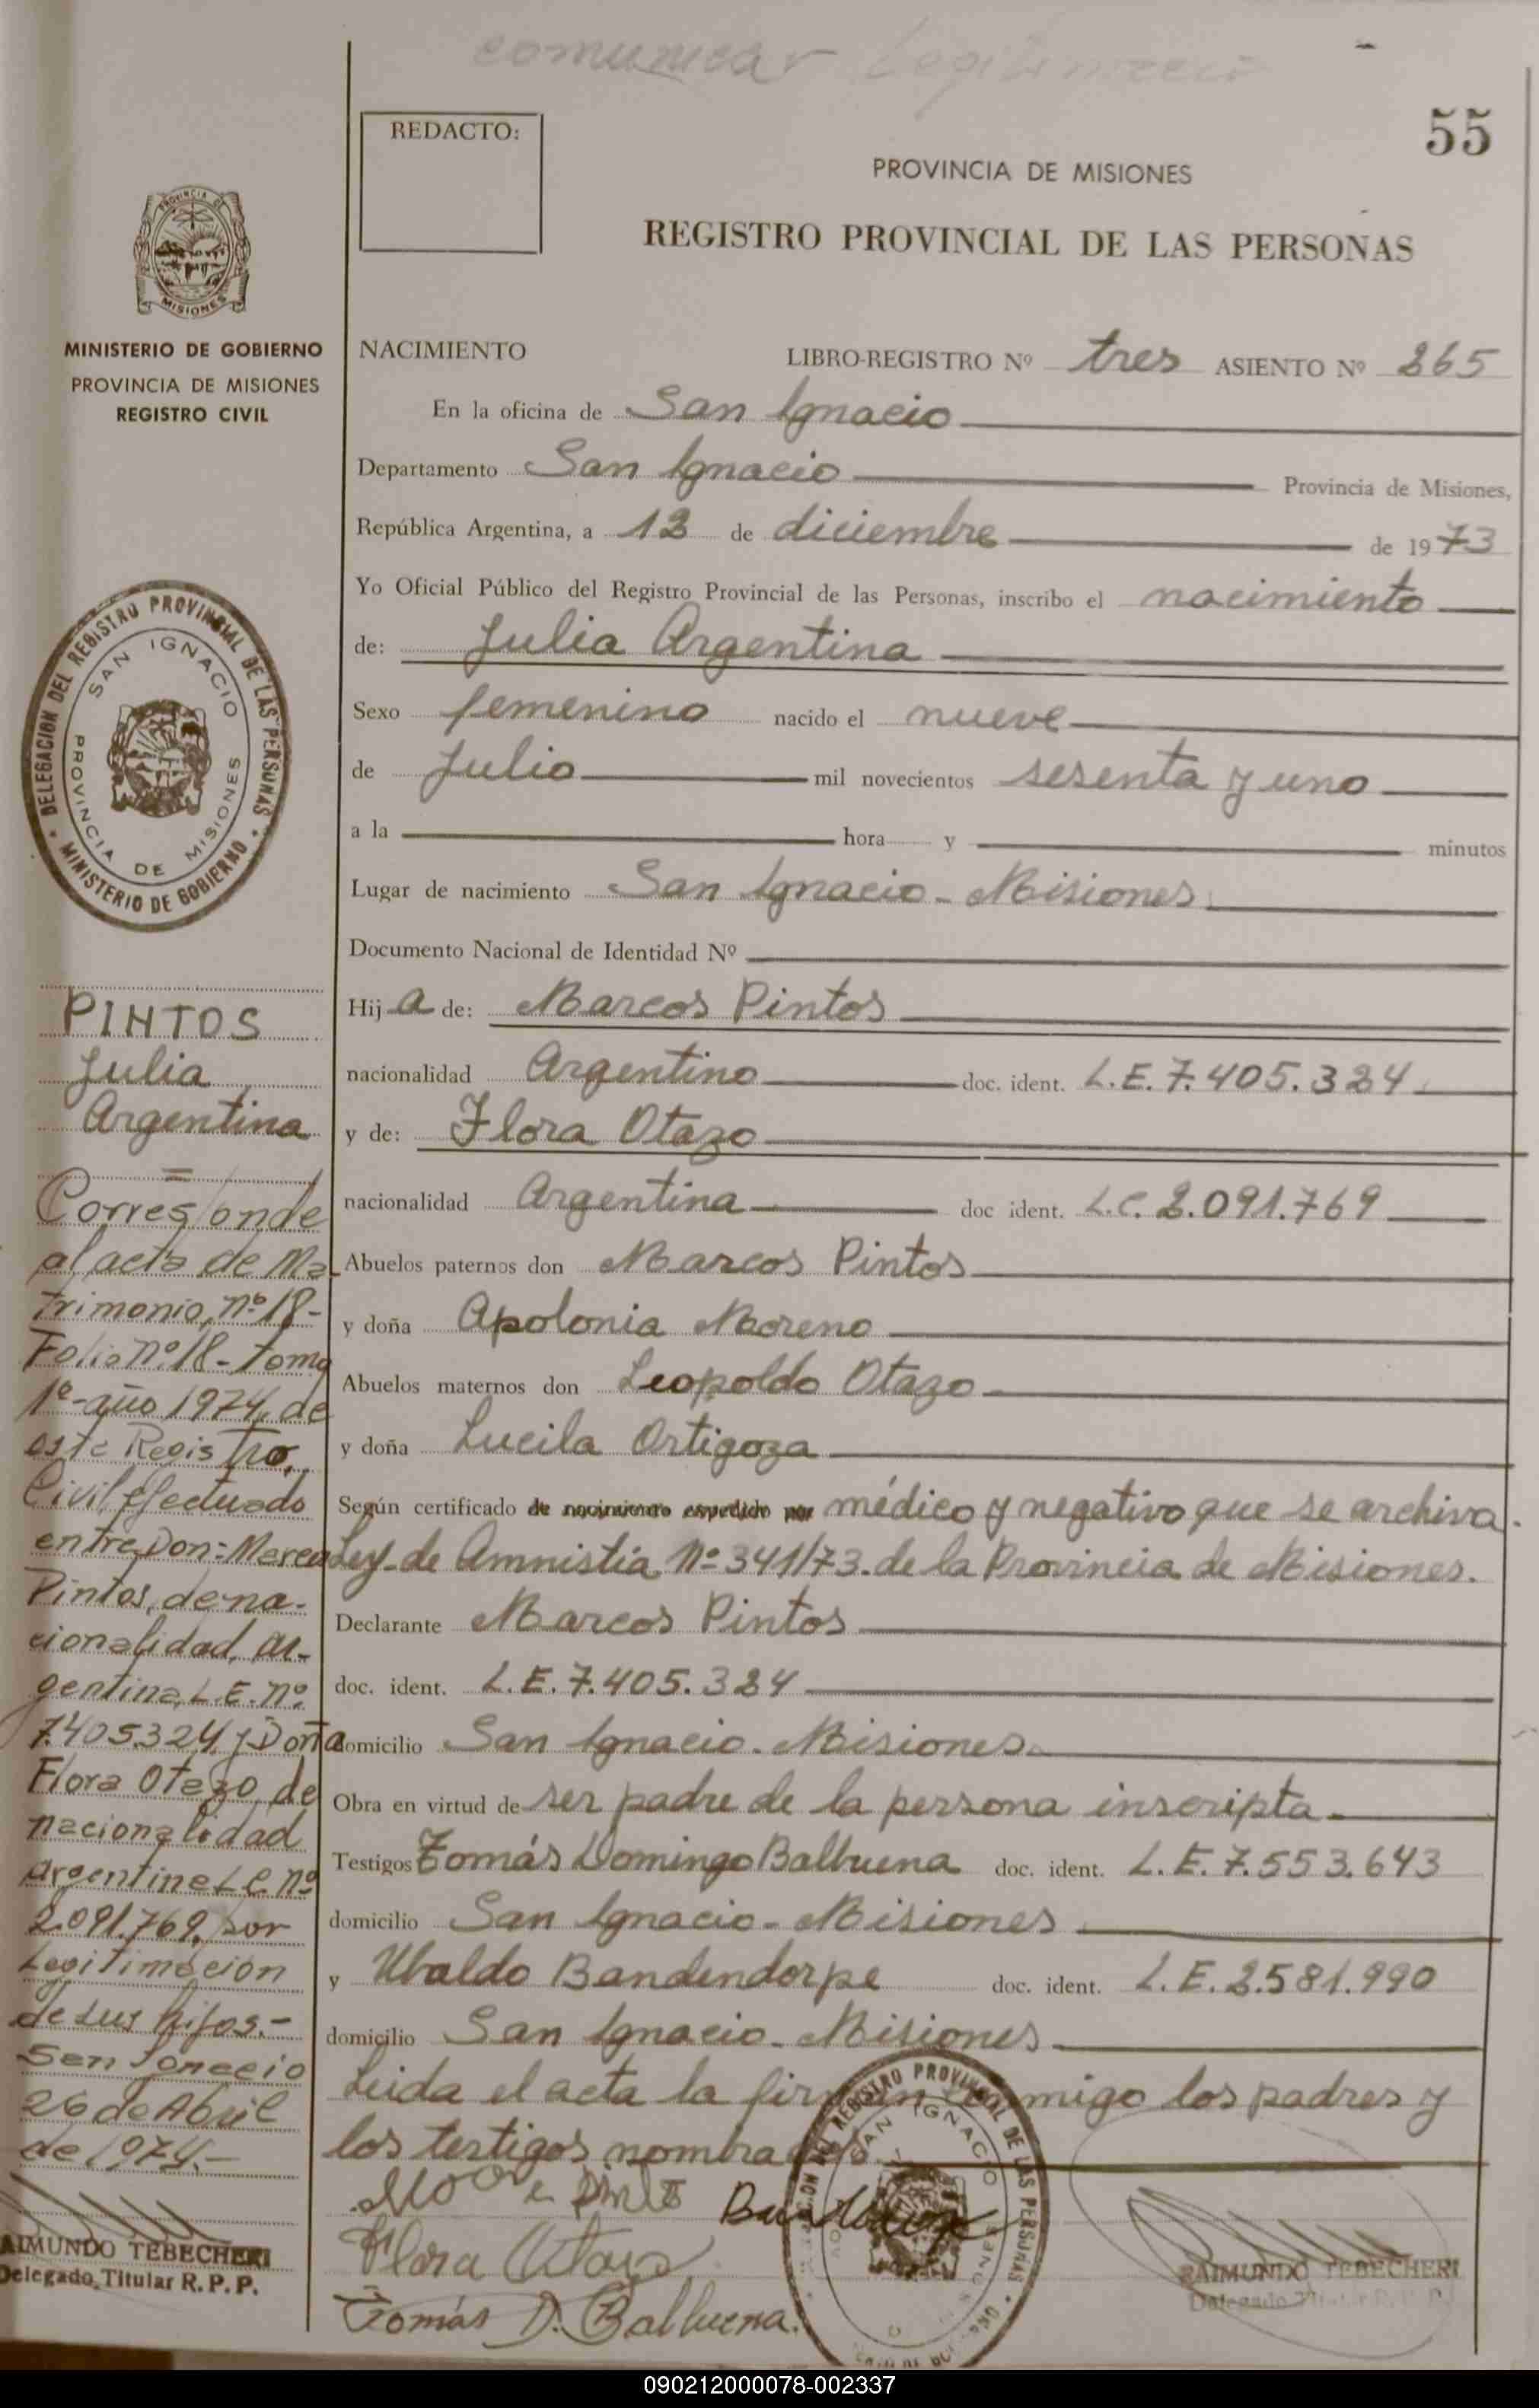 comunicar Legitimación
55
REDACTO:
PROVINCIA DE MISIONES
REGISTRO PROVINCIAL DE LAS PERSONAS
PROVINCIA DE
MISIONES
MINISTERIO DE GOBIERNO
PROVINCIA DE MISIONES
REGISTRO CIVIL
NACIMIENTO LIBRO-REGISTRO Nº tres ASIENTO Nº 265
En la oficina de San Ignacio
Departamento San Ignacio Provincia de Misiones,
República Argentina, a 12 de diciembre de 1973
Yo Oficial Público del Registro Provincial de las Personas, inscribo el nacimiento
de: Julia Argentina
Sexo femenino nacido el nueve
de Julio mil novecientos sesenta y uno
a la hora y minutos
Lugar de nacimiento San Ignacio - Misiones
Documento Nacional de Identidad Nº
Hija de: Marcos Pintos
nacionalidad Argentino doc. ident. L.E. 7.405.324
y de: Flora Otazo
nacionalidad Argentina doc ident. L.C. 2.091.769
Abuelos paternos don Marcos Pintos
y doña Apolonia Moreno
Abuelos maternos don Leopoldo Otazo
y doña Lucila Ortigoza
Según certificado de nacimiento expedido por médico y negativo que se archiva.
Ley de Amnistía Nº 341/73. de la Provincia de Misiones.
Declarante Marcos Pintos
doc. ident. L.E. 7.405.324
domicilio San Ignacio. Misiones
Obra en virtud de ser padre de la persona inscripta
Testigos Tomás Domingo Balbuena doc. ident. L.E. 7.553.643
domicilio San Ignacio - Misiones
y Ubaldo Bandendorpe doc. ident. L.E. 2.581.990
domicilio San Ignacio - Misiones
Leida el acta la firman conmigo los padres y
los testigos nombrados.
Flora Otazo
Tomás D. Balbuena.
RAIMUNDO TEBECHERI
Delegado Titular R.P.P.
DELEGACION DEL REGISTRO PROVINCIAL DE LAS PERSONAS
MINISTERIO DE GOBIERNO
SAN IGNACIO
PROVINCIA DE MISIONES
PINTOS
Julia
Argentina
=
Corresponde
al acta de Ma-
trimonio, nº 18-
Folio nº 18 - tomo
1º - año 1974, de
este Registro
Civil efectuado
entre Don: Marcos
Pintos, de na-
cionalidad, ar-
gentina, L.E. nº
7.405.324 y Doña
Flora Otazo, de
nacionalidad
argentina L.C. nº
2.091.769, por
Legitimación
de sus hijos.-
San Ignacio
26 de Abril
de 1974.-
RAIMUNDO TEBECHERI
Delegado Titular R.P.P.
090212000078-002337